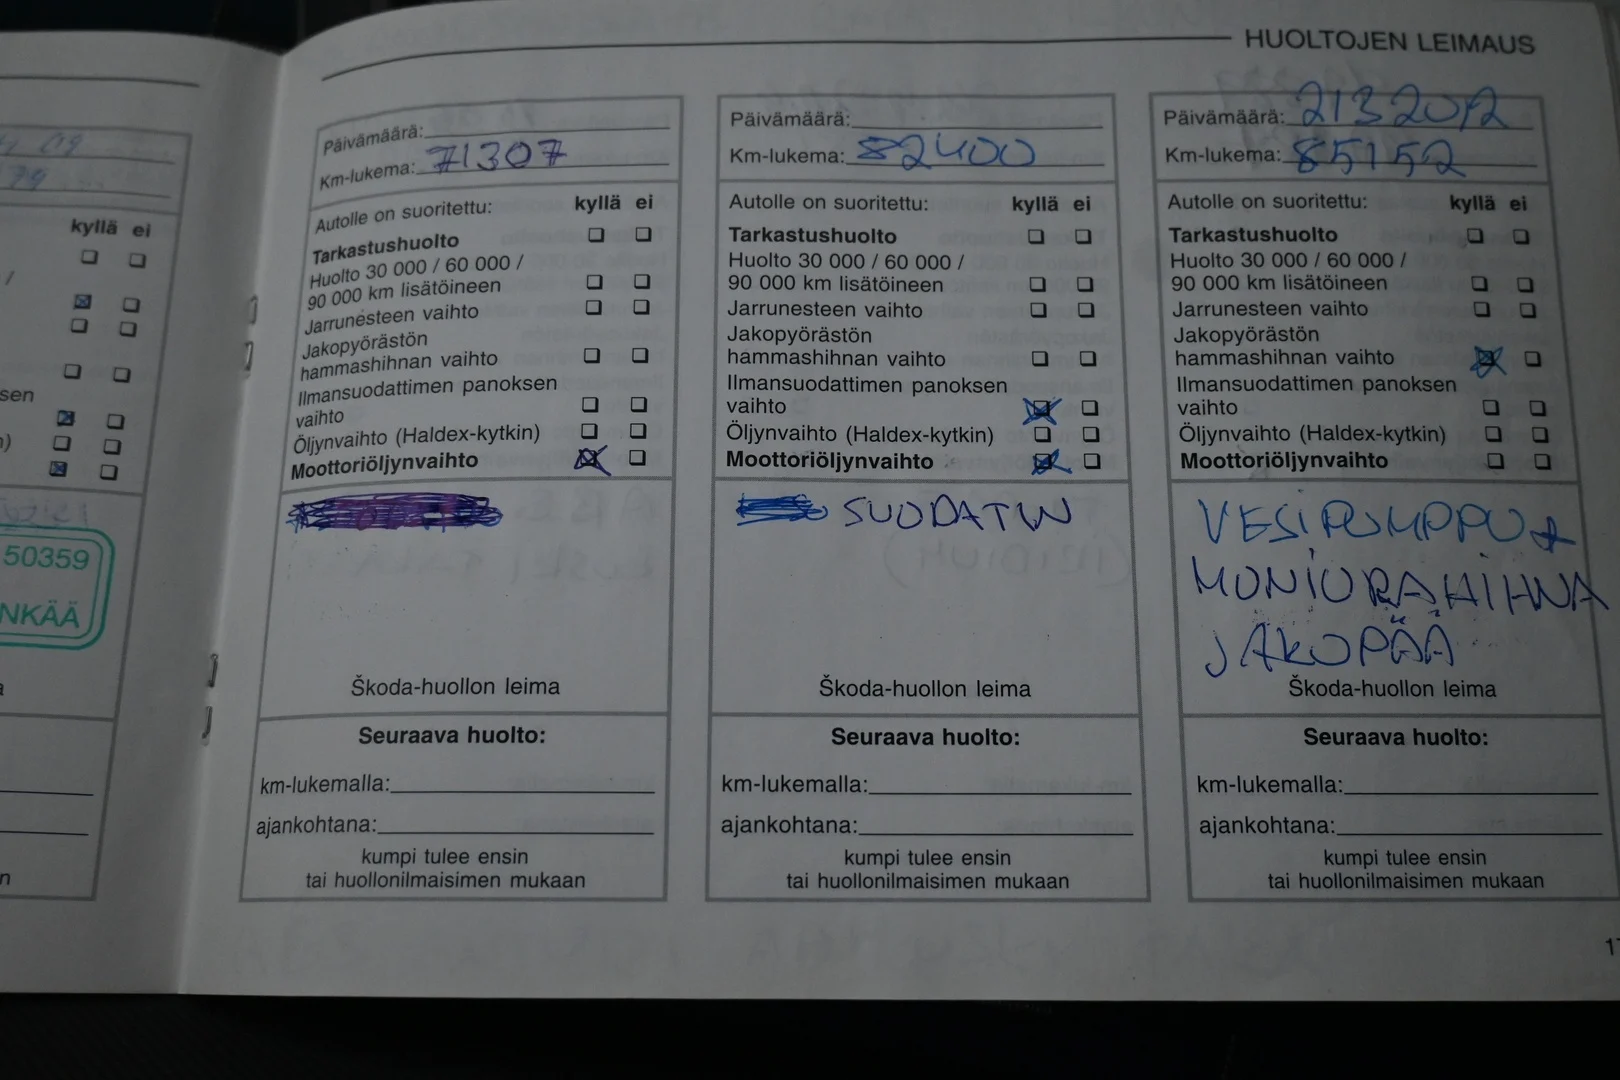 HUOLTOJEN LEIMAUS
09
79
kyllä ei
/
sen
)
50359
NKÄÄ
a
n
Päivämäärä:
Km-lukema: 71307
Autolle on suoritettu: kyllä ei
Tarkastushuolto
Huolto 30 000 / 60 000 /
90 000 km lisätöineen
Jarrunesteen vaihto
Jakopyörästön
hammashihnan vaihto
Ilmansuodattimen panoksen
vaihto
Öljynvaihto (Haldex-kytkin)
Moottoriöljynvaihto
Škoda-huollon leima
Seuraava huolto:
km-lukemalla:
ajankohtana:
kumpi tulee ensin
tai huollonilmaisimen mukaan
Päivämäärä:
Km-lukema: 82400
Autolle on suoritettu: kyllä ei
Tarkastushuolto
Huolto 30 000 / 60 000 /
90 000 km lisätöineen
Jarrunesteen vaihto
Jakopyörästön
hammashihnan vaihto
Ilmansuodattimen panoksen
vaihto
Öljynvaihto (Haldex-kytkin)
Moottoriöljynvaihto
SUODATIN
Škoda-huollon leima
Seuraava huolto:
km-lukemalla:
ajankohtana:
kumpi tulee ensin
tai huollonilmaisimen mukaan
Päivämäärä: 2132012
Km-lukema: 85152
Autolle on suoritettu: kyllä ei
Tarkastushuolto
Huolto 30 000 / 60 000 /
90 000 km lisätöineen
Jarrunesteen vaihto
Jakopyörästön
hammashihnan vaihto
Ilmansuodattimen panoksen
vaihto
Öljynvaihto (Haldex-kytkin)
Moottoriöljynvaihto
VESIPUMPPU +
MONIURAHIHNA
JAKOPÄÄ
Škoda-huollon leima
Seuraava huolto:
km-lukemalla:
ajankohtana:
kumpi tulee ensin
tai huollonilmaisimen mukaan